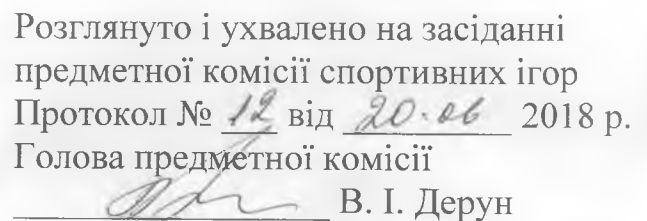 Розглянуто і ухвалено на засіданні
предметної комісії спортивних ігор
Протокол № 12 від 20.06 2018 р.
Голова предметної комісії
В. І. Дерун